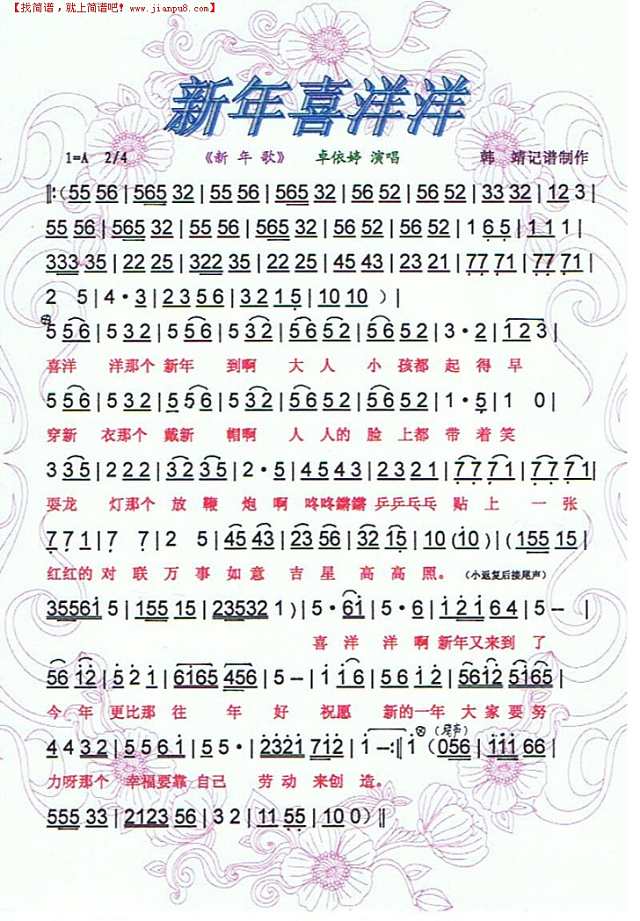 【找简谱，就上简谱吧！www.jianpu8.com】
新年喜洋洋
1=A 2/4 《新年歌》 卓依婷 演唱 韩 婧记谱制作
‖:(55 56 | 565 32 | 55 56 | 565 32 | 56 52 | 56 52 | 33 32 | 12 3 |
55 56 | 565 32 | 55 56 | 565 32 | 56 52 | 56 52 | 1 6 5 | 1 1 0 |
333 35 | 22 25 | 322 35 | 22 25 | 45 43 | 23 21 | 77 71 | 77 71 |
2 5 | 4 · 3 | 2 3 5 6 | 3 2 1 5 | 10 10 ) |
5 5 6 | 5 3 2 | 5 5 6 | 5 3 2 | 5 6 5 2 | 5 6 5 2 | 3 · 2 | 1 2 3 |
喜洋 洋那个 新年 到啊 大 人 小 孩都 起 得 早
5 5 6 | 5 3 2 | 5 5 6 | 5 3 2 | 5 6 5 2 | 5 6 5 2 | 1 · 5 | 1 0 |
穿新 衣那个 戴新 帽啊 人 人的 脸 上都 带 着 笑
3 3 5 | 2 2 2 | 3 2 3 5 | 2 · 5 | 4 5 4 3 | 2 3 2 1 | 7 7 7 1 | 7 7 7 1 |
耍龙 灯那个 放 鞭 炮 啊 咚咚锵锵 乒乒乓乓 贴 上 一 张
7 7 1 | 7 7 | 2 5 | 45 43 | 23 56 | 32 15 | 10 (10) | (155 15 |
红红的 对 联 万 事 如 意 吉 星 高 高 照。 （小返复后接尾声）
35561 5 | 155 15 | 23532 1 ) | 5 · 61 | 5 · 6 | 1 2 1 6 4 | 5 – |
喜 洋 洋 啊 新年又来到 了
56 12 | 5 2 1 | 6165 456 | 5 – | 1 1 6 | 5 6 5 | 5612 5165 |
今 年 更比那 往 年 好 祝愿 新的一年 大 家 要 努
4 4 3 2 | 5 5 6 1 | 5 5 · | 2321 712 | 1 – :‖ 1 (尾声) (056 | 111 66 |
力呀那个 幸福要靠 自己 劳 动 来创 造。
555 33 | 2123 56 | 3 2 | 11 55 | 10 0 ) ‖